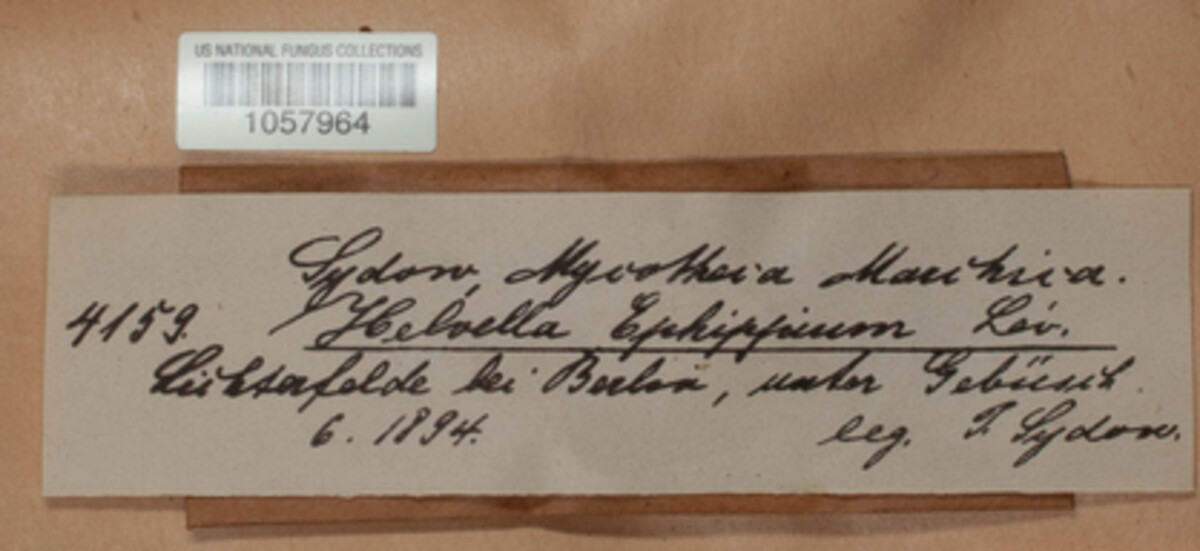 US NATIONAL FUNGUS COLLECTIONS
1057964
Sydow, Mycotheca Marchica.
4159. Helvella Ephippium Lév.
Lichterfelde bei Berlin, unter Gebüsch.
6. 1894. leg. P. Sydow.